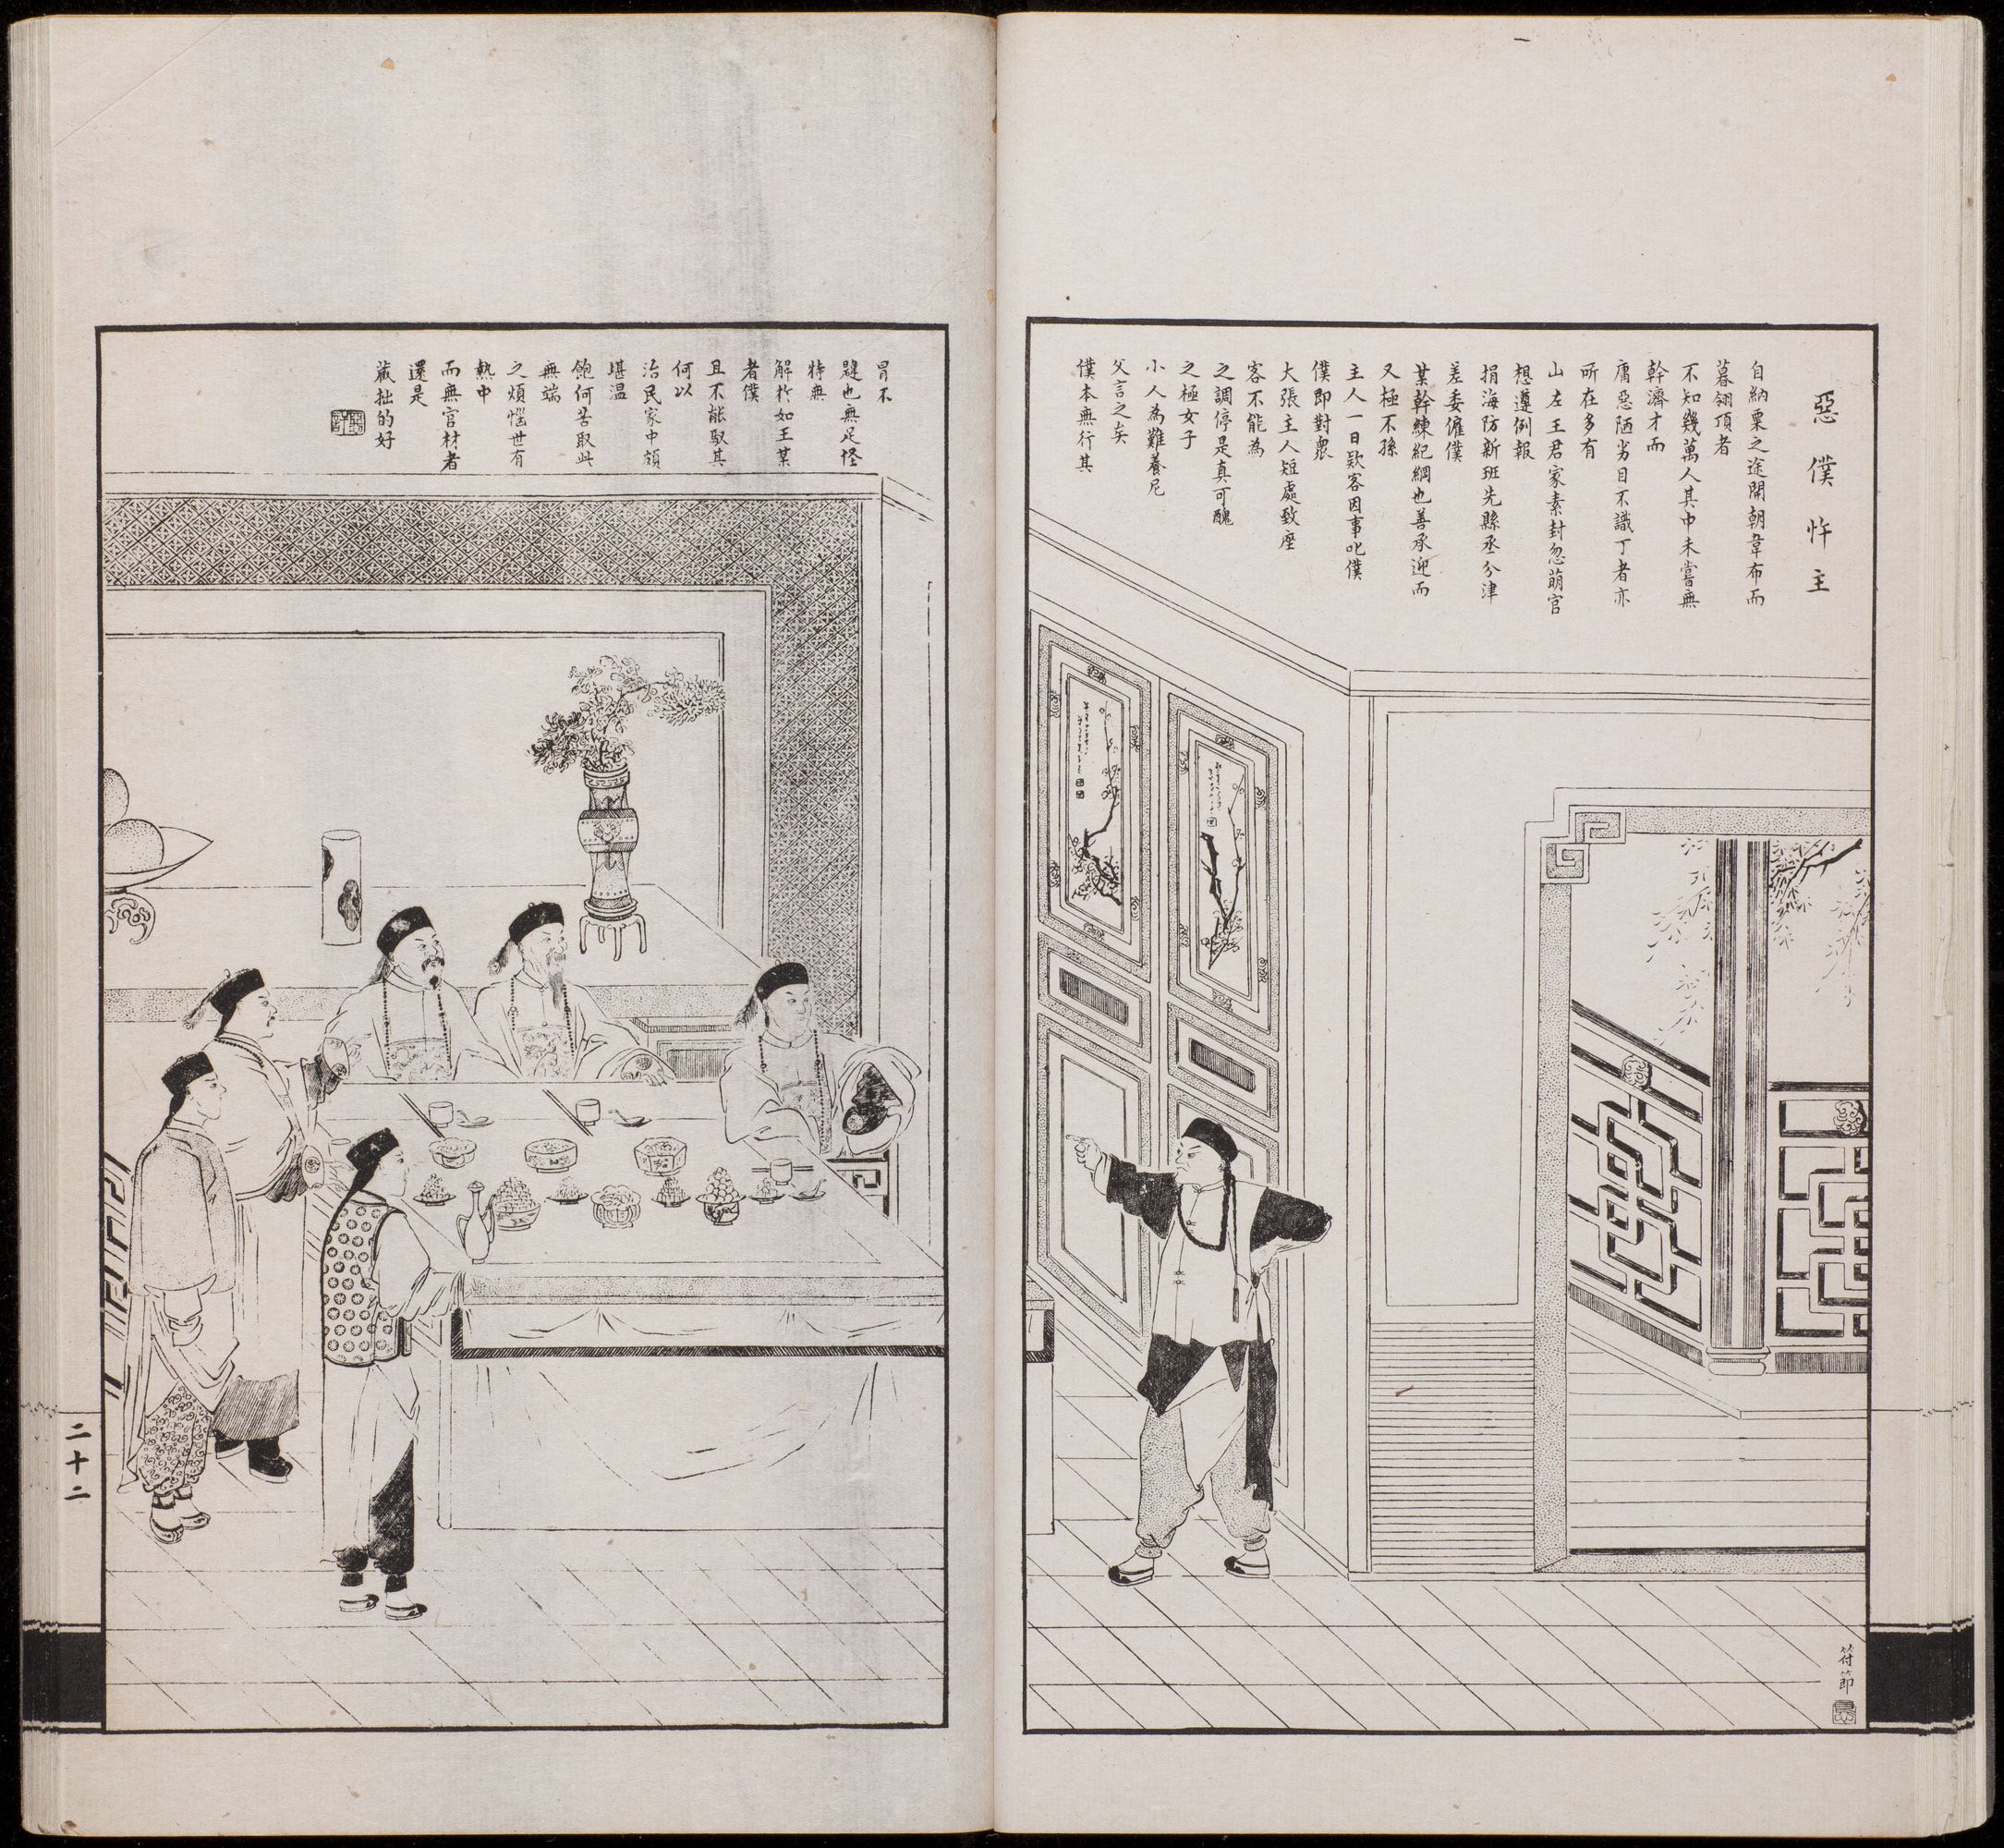 惡僕忤主
自納粟之途開朝韋布而
暮翎頂者
不知幾萬人其中未嘗無
幹濟才而
庸惡陋劣目不識丁者亦
所在多有
山左王君家素封忽萌官
想遵例報
捐海防新班先縣丞分津
差委僱僕
某幹練紀綱也善承迎而
又極不孫
主人一日欵客因事叱僕
僕即對衆
大張主人短處致座
客不能為
之調停是真可醜
之極女子
小人為難養尼
父言之矣
僕本無行其
冐不
韙也無足怪
特無
解於如王某
者僕
且不能馭其
何以
治民家中頗
堪温
飽何苦取此
無端
之煩惱世有
熱中
而無官材者
還是
藏拙的好
符節
二十二